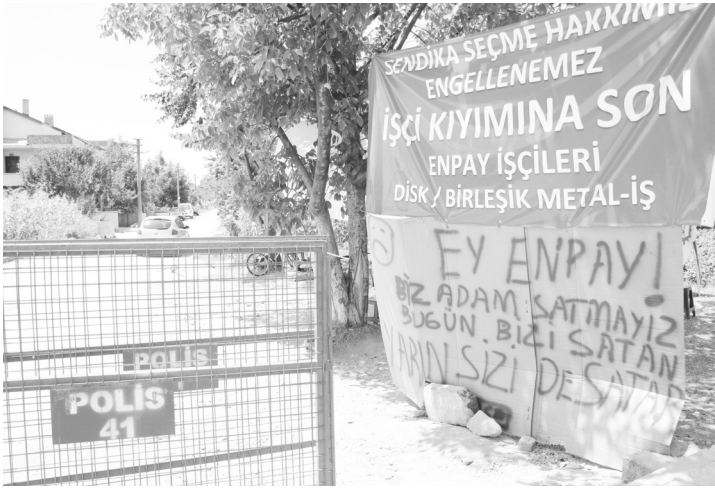 SENDİKA SEÇME HAKKIMIZ
ENGELLENEMEZ
İŞÇİ KIYIMINA SON
ENPAY İŞÇİLERİ
DİSK / BİRLEŞİK METAL-İŞ
EY ENPAY!
BİZ ADAM SATMAYIZ
BUGÜN BİZİ SATAN
YARIN SİZİ DE SATAR
POLİS
POLİS
41